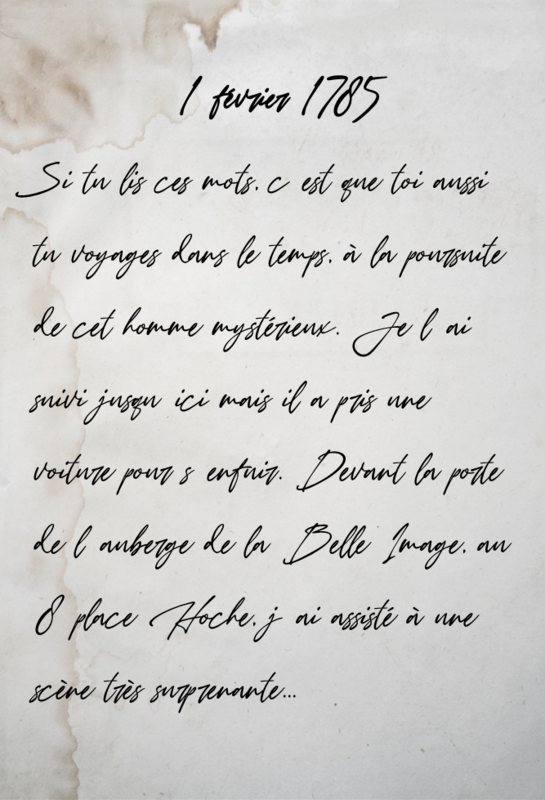 1 février 1785
Si tu lis ces mots, c est que toi aussi
tu voyages dans le temps, à la poursuite
de cet homme mystérieux. Je l ai
suivi jusqu ici mais il a pris une
voiture pour s enfuir. Devant la porte
de l auberge de la Belle Image, au
8 place Hoche, j ai assisté à une
scène très surprenante...